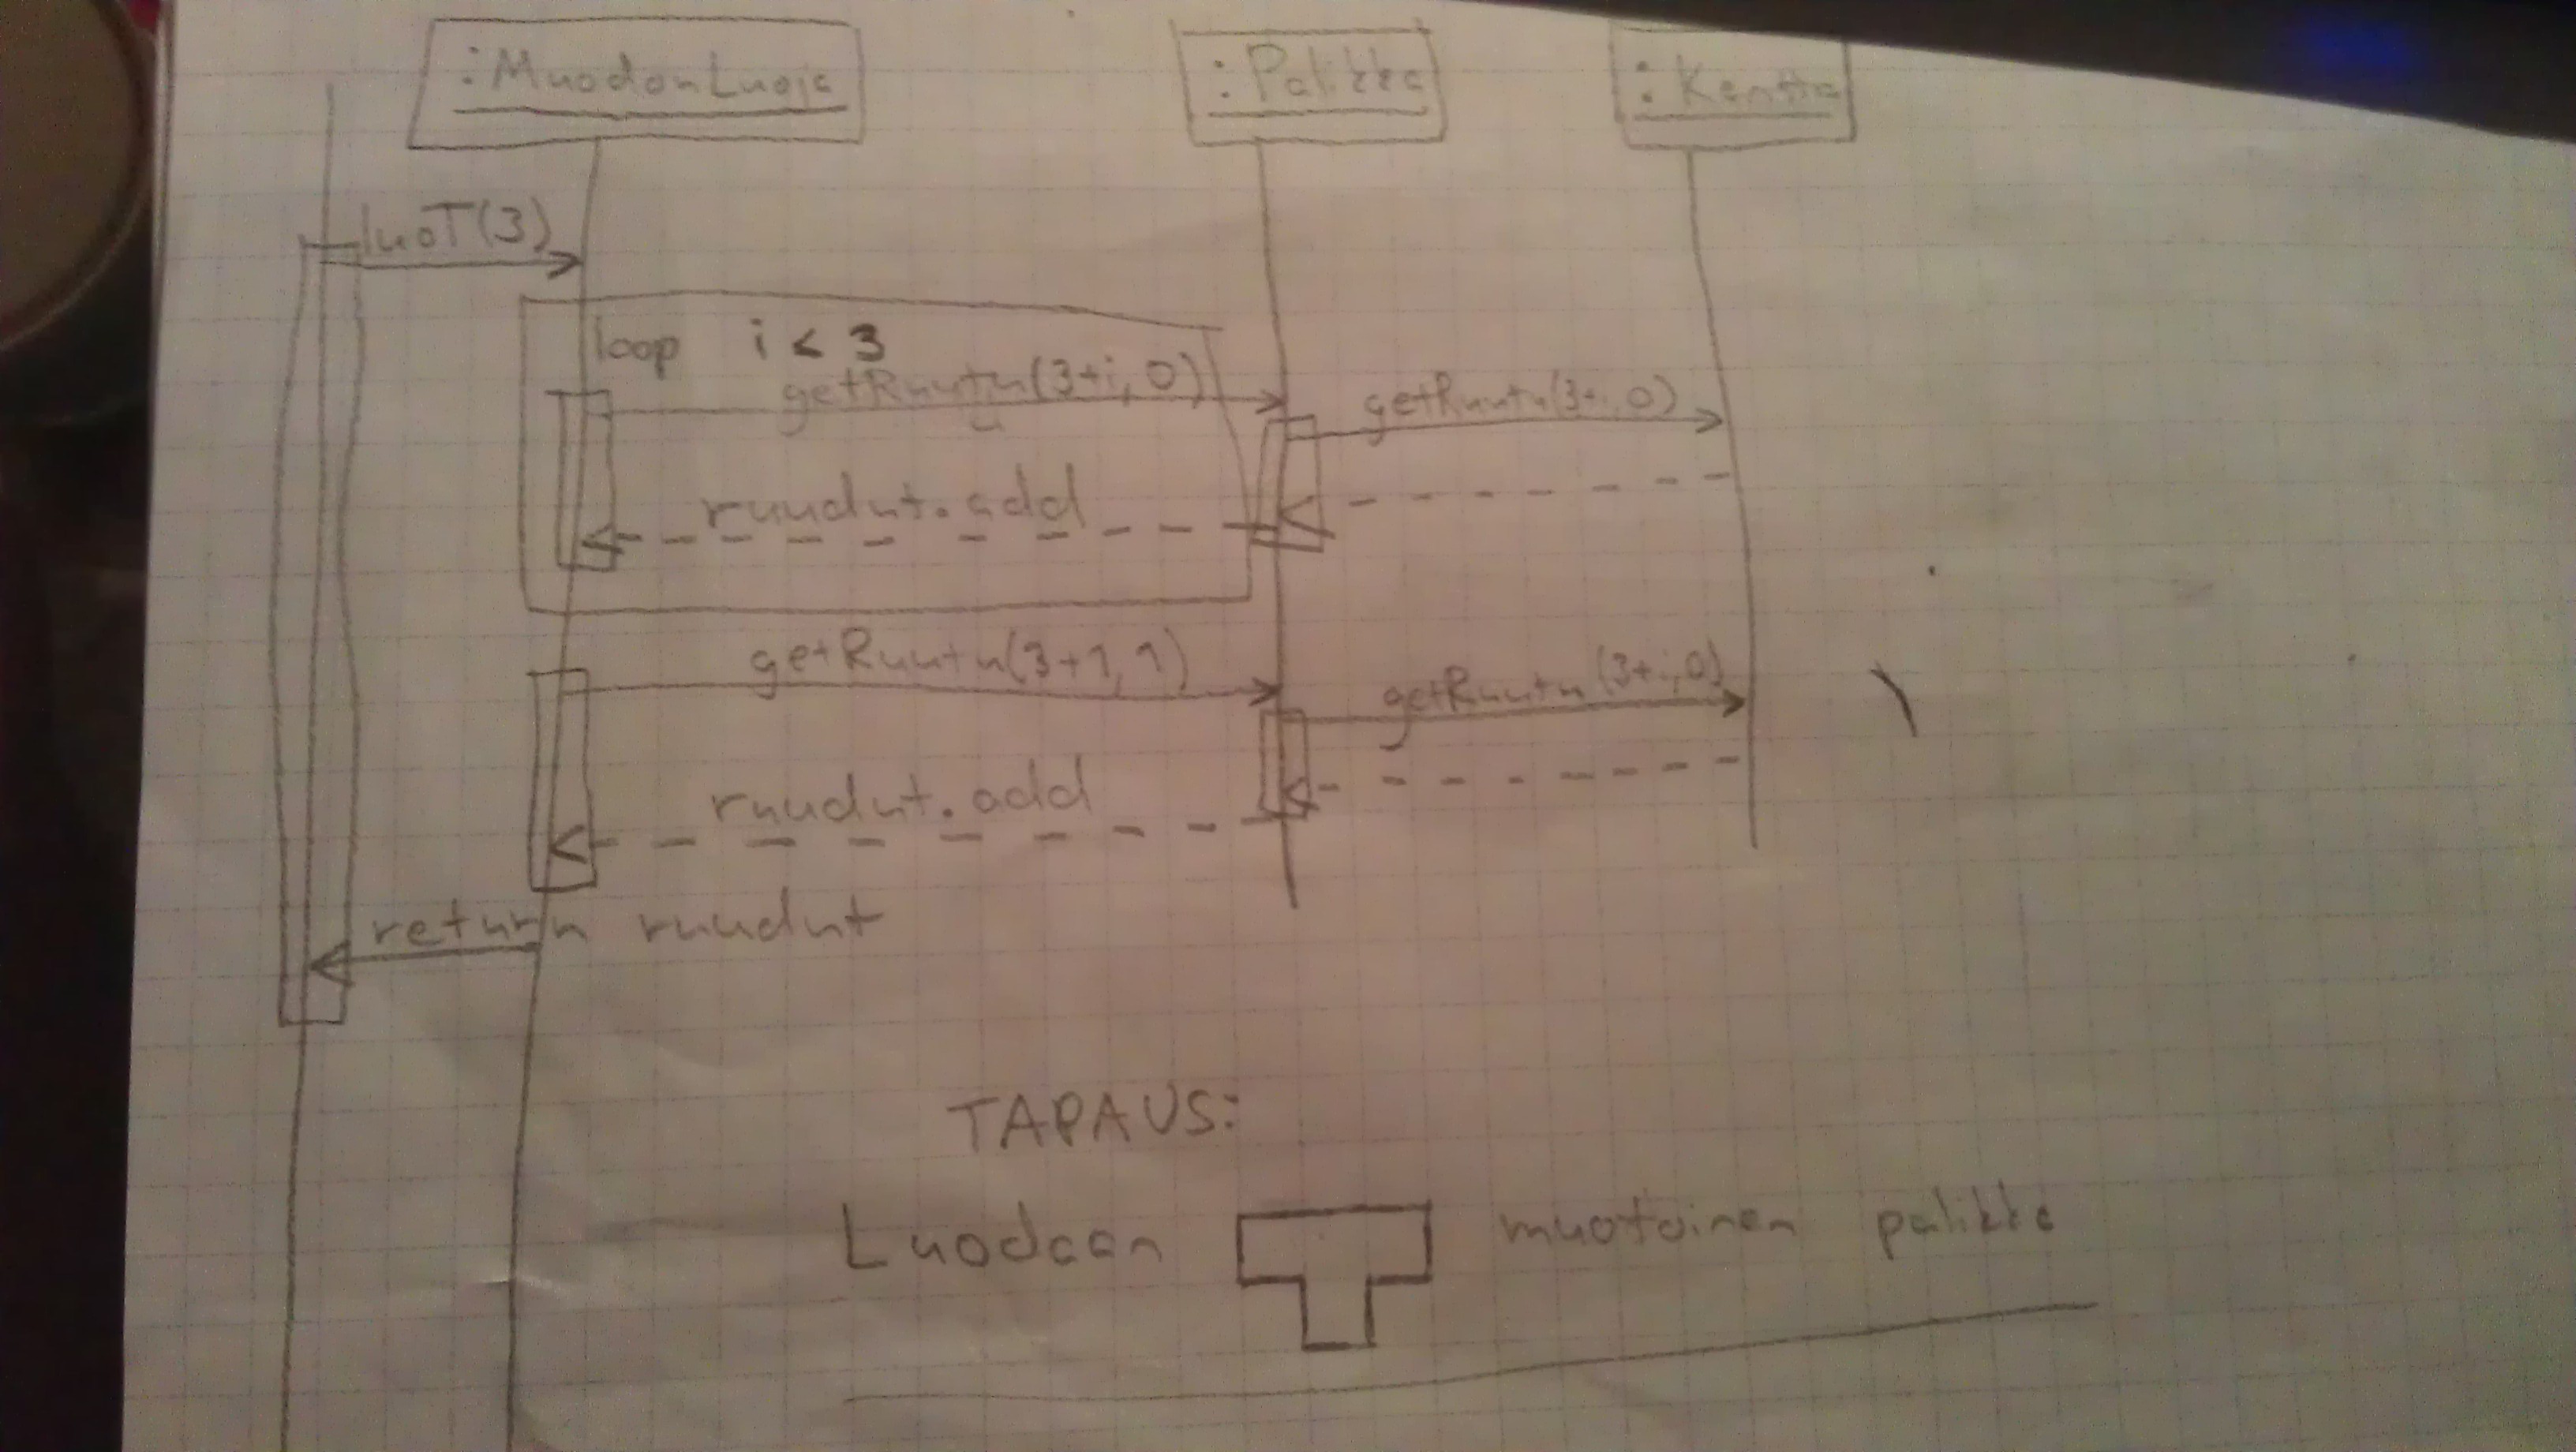 :MuodonLuoja :Palikka :Kenttä
luoT(3)
loop i < 3
getRuutu(3+i, 0)
getRuutu(3+i, 0)
ruudut.add
getRuutu(3+1, 1)
getRuutu(3+i, 0)
ruudut.add
return ruudut
TAPAUS:
Luodaan muotoinen palikka